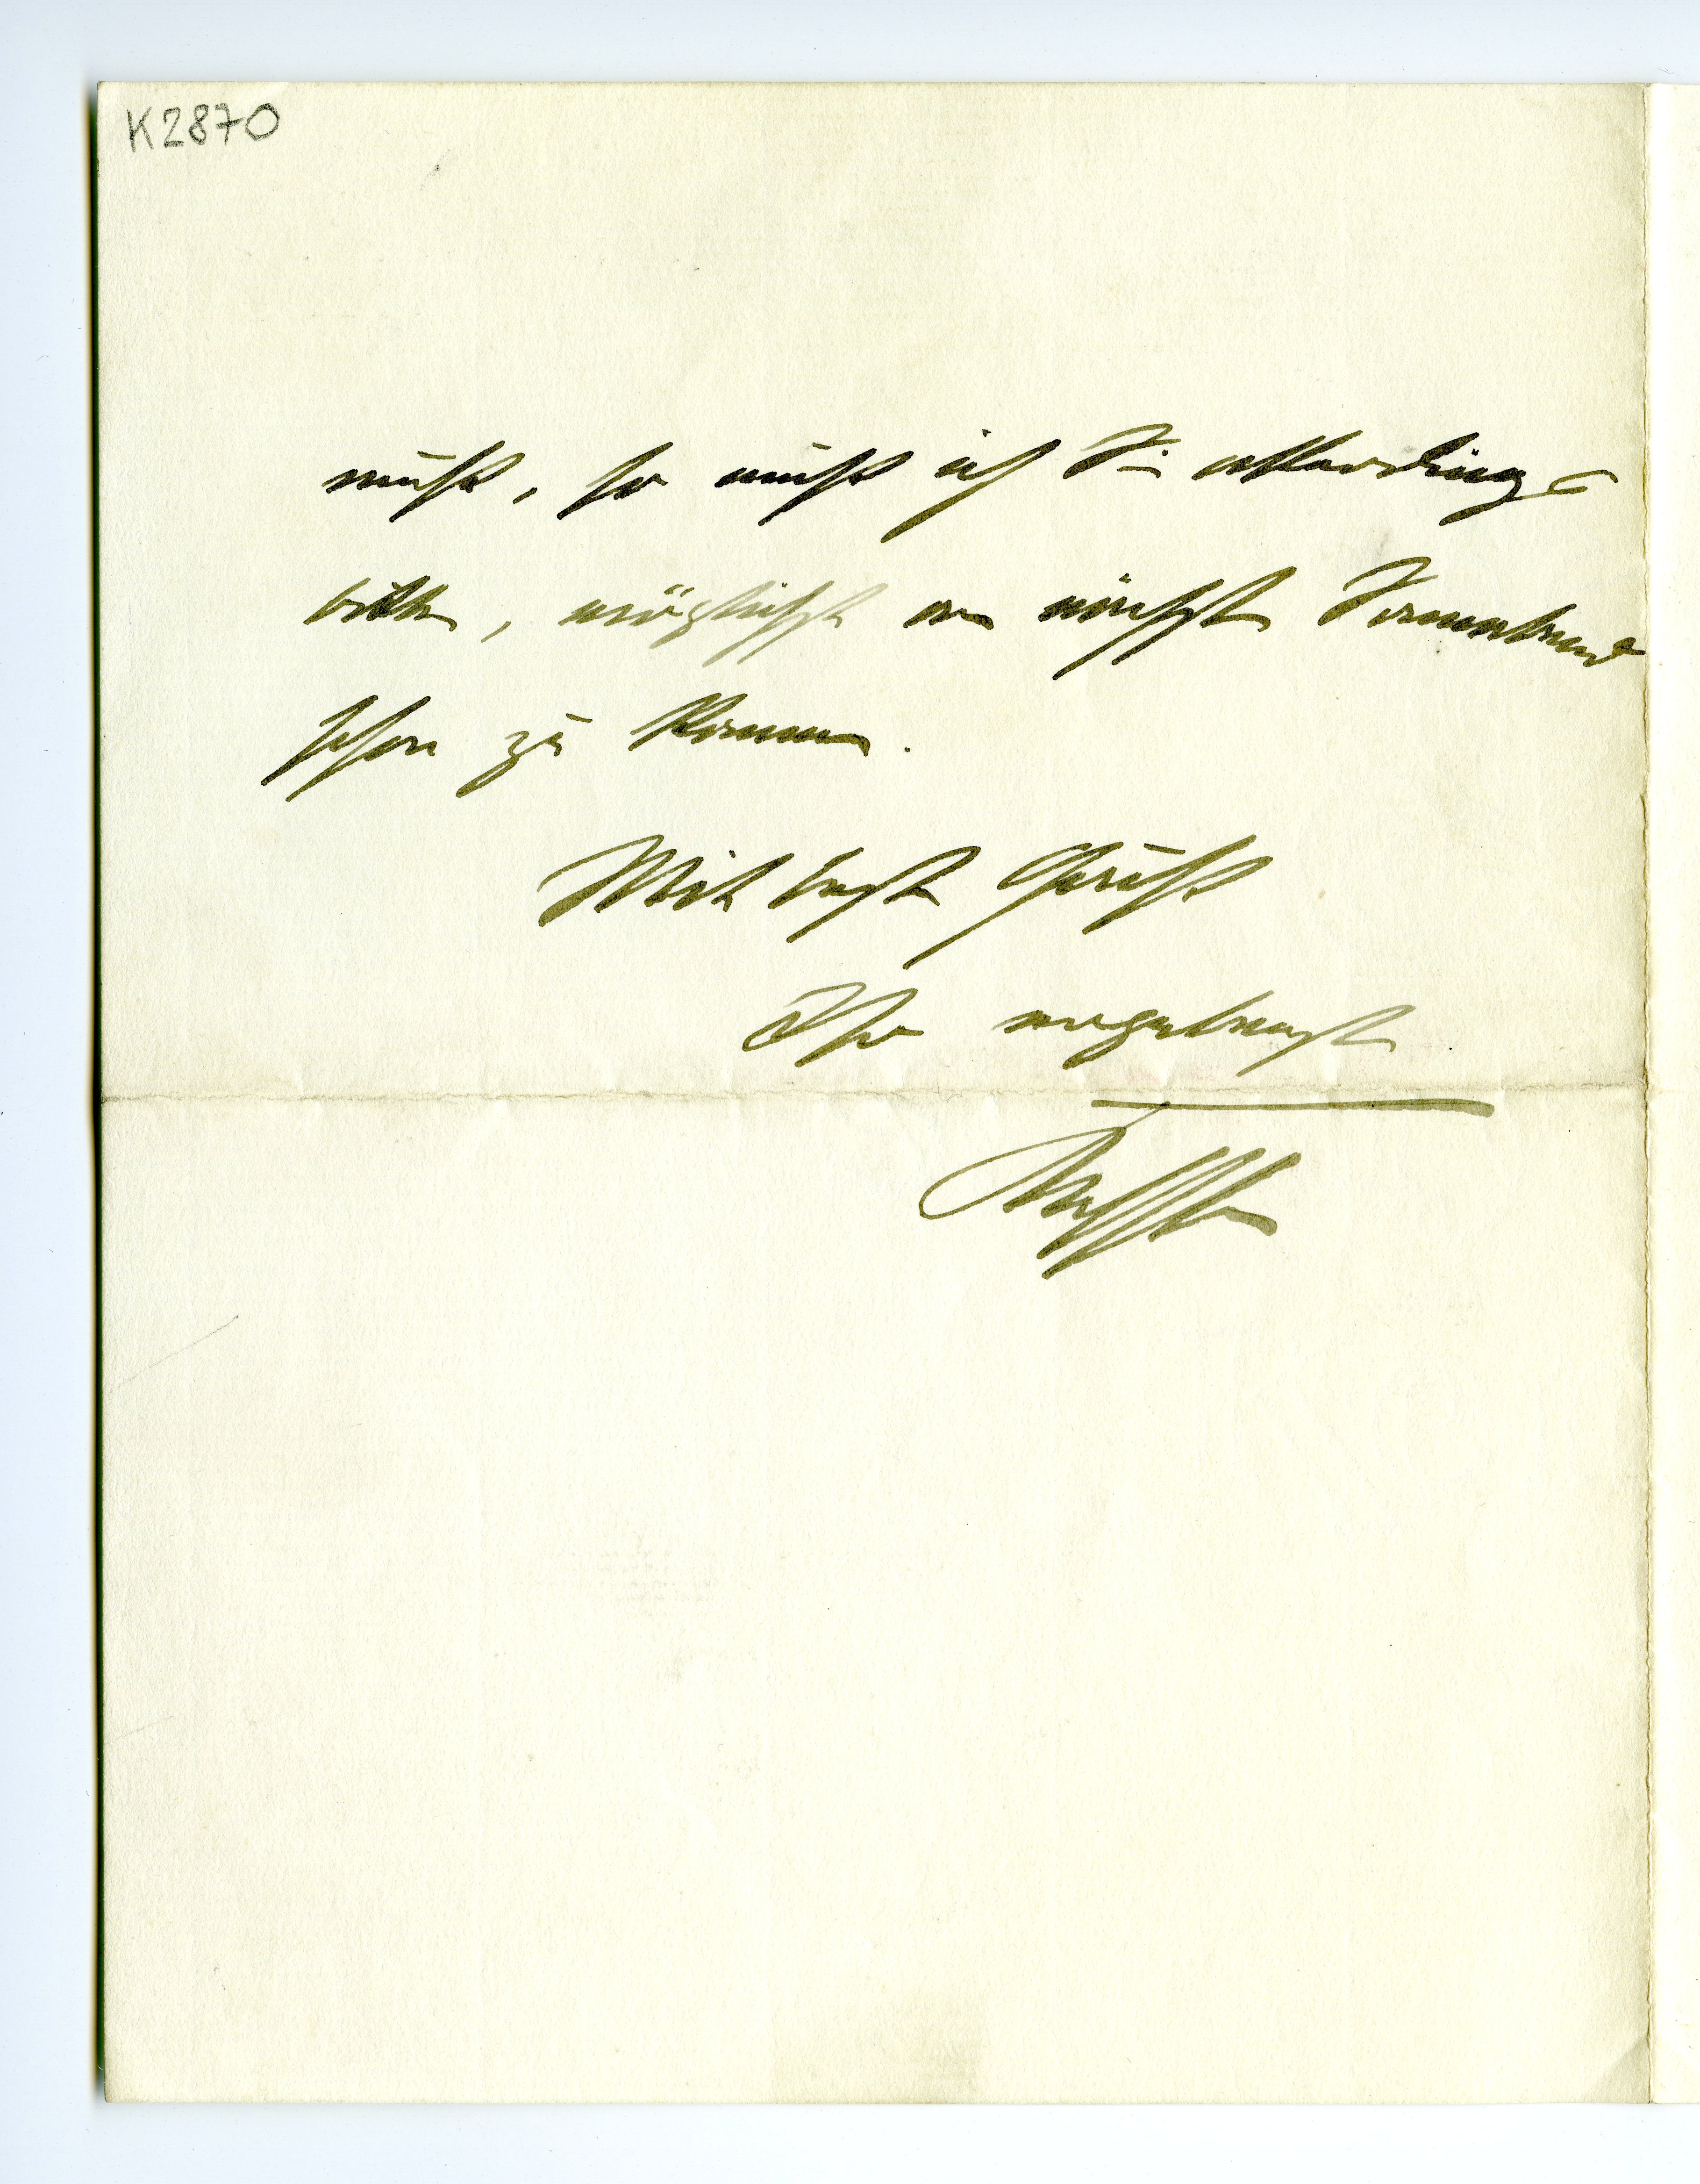 K2870
muß, so muß ich Sie allerdings
bitten, möglichst am nächsten Sonnabend
schon zu kommen.
Mit bestem Gruß
Ihr ergebenster